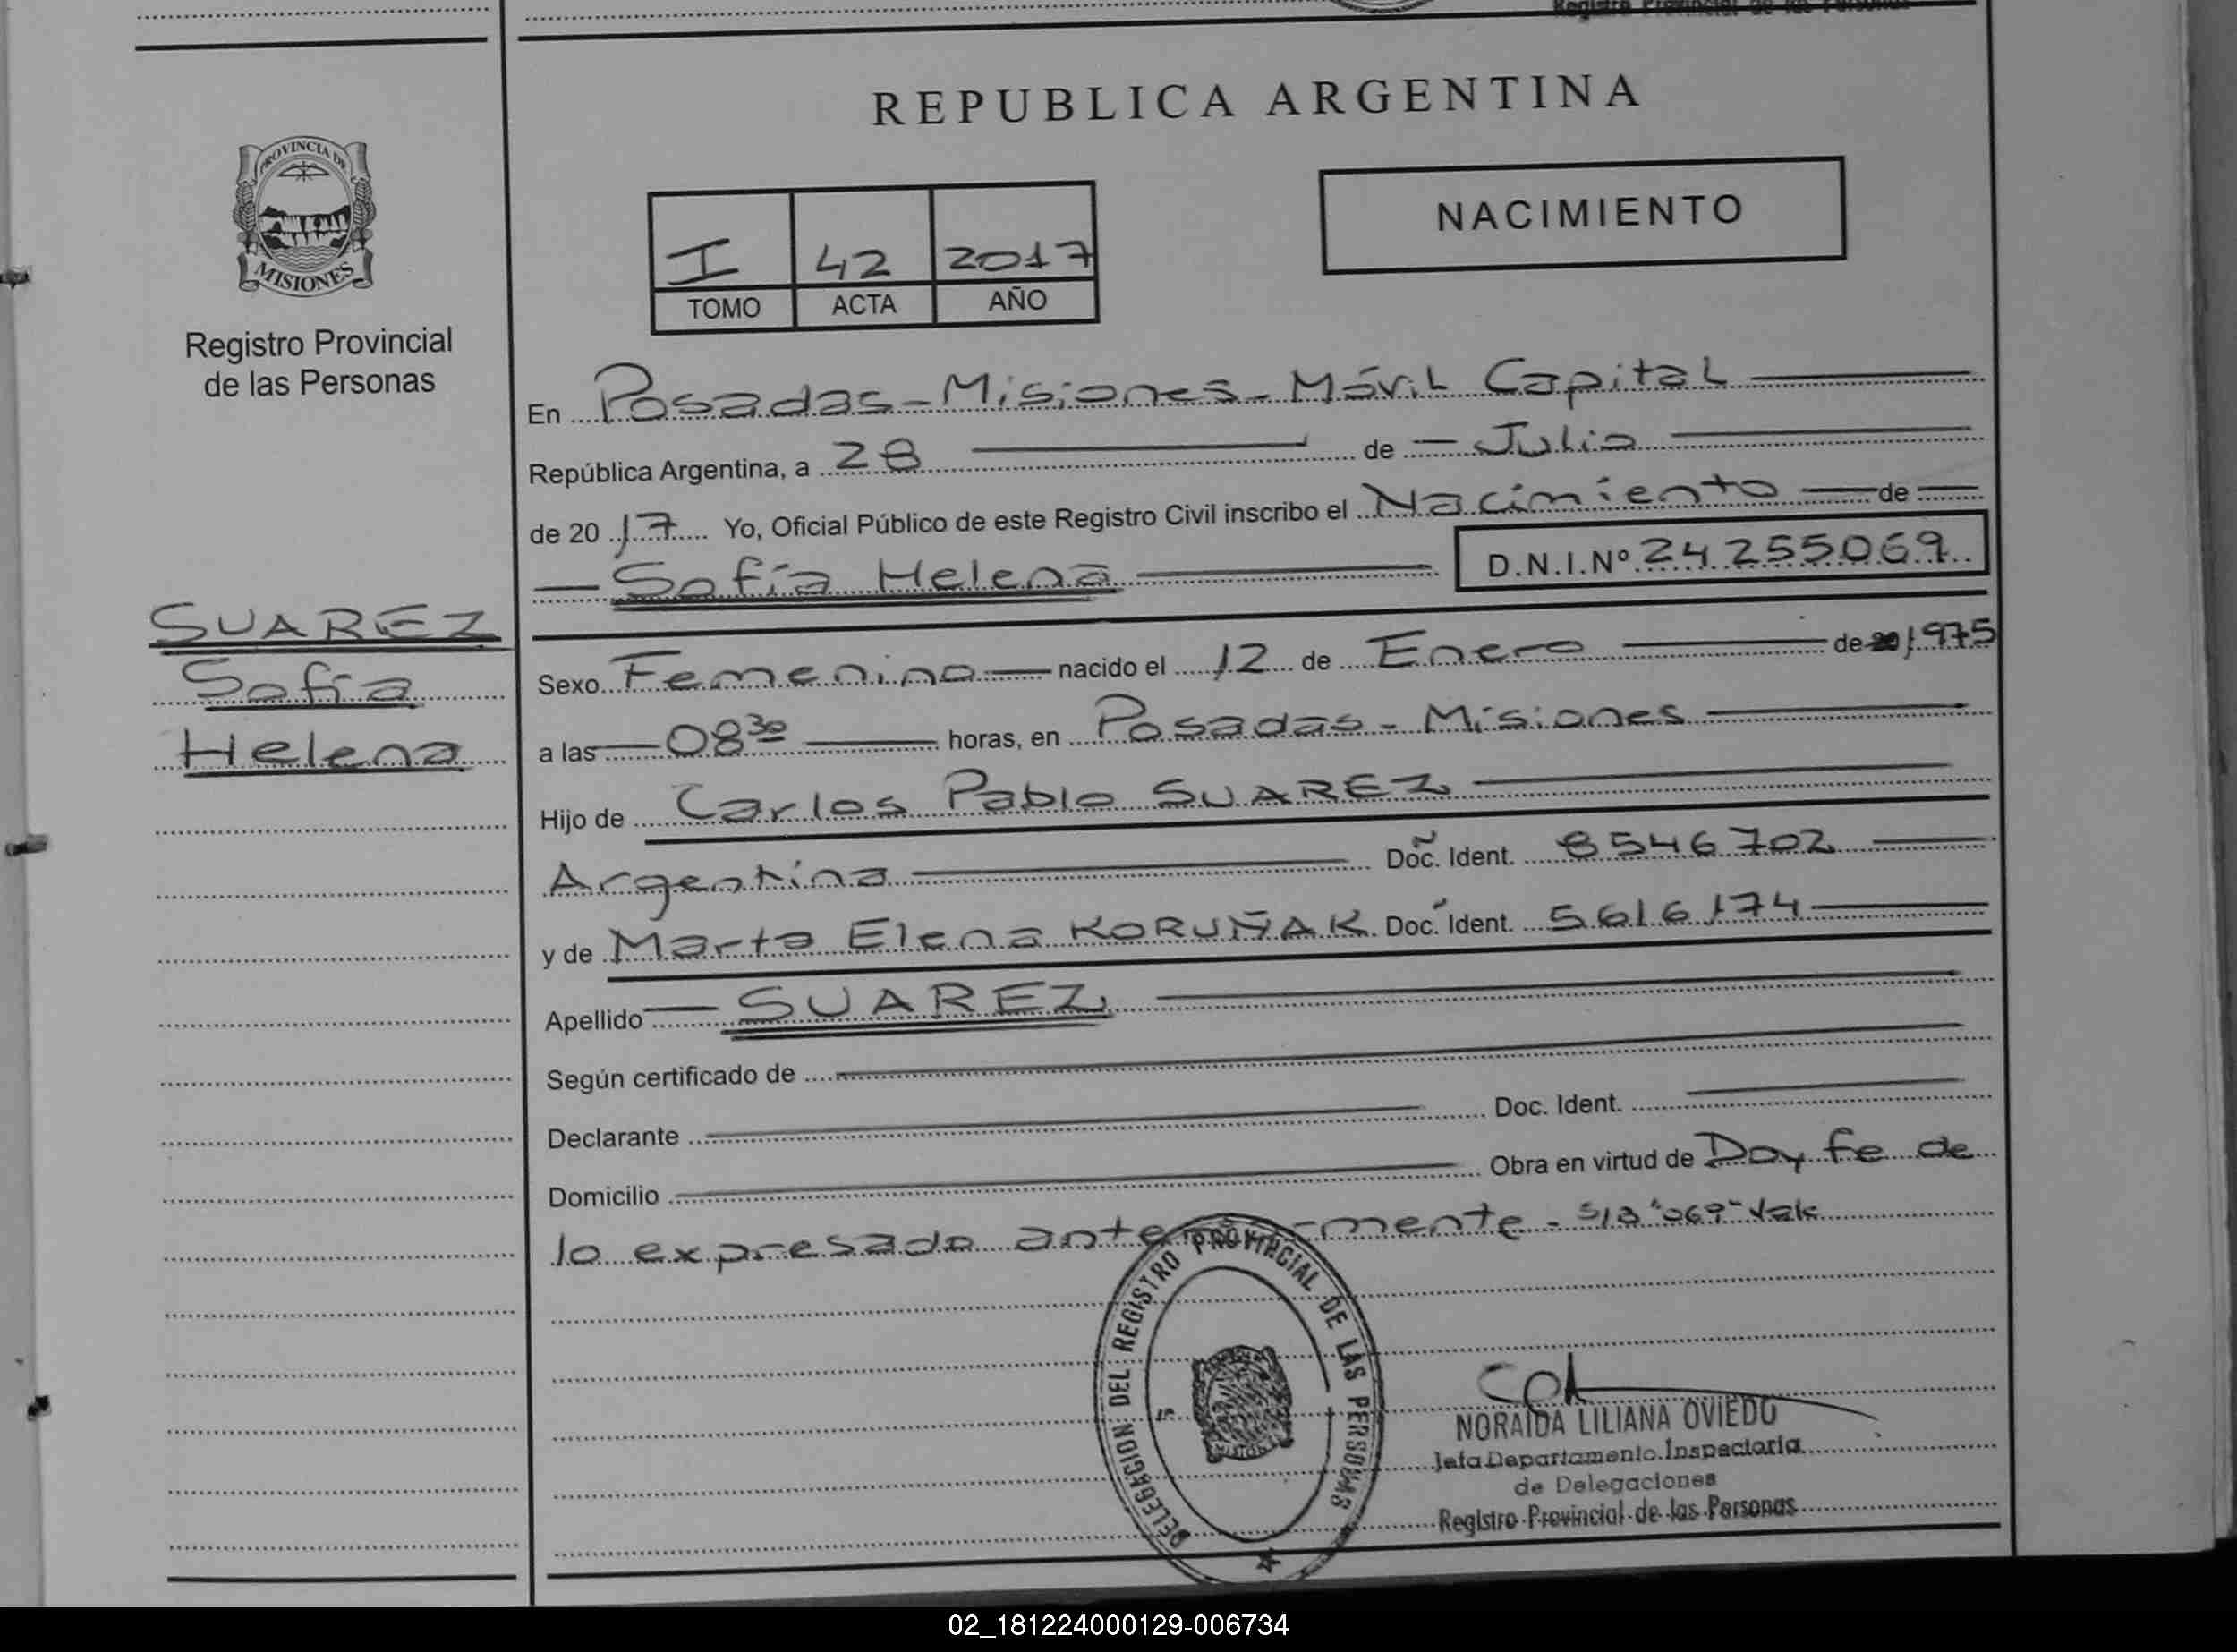 Registro Provincial de las Personas
PROVINCIA DE
MISIONES
Registro Provincial
de las Personas
SUAREZ
Sofía
Helena
REPUBLICA ARGENTINA
I 42 2017
TOMO ACTA AÑO
NACIMIENTO
En Posadas - Misiones - Móvil Capital
República Argentina, a 28 de Julio
de 2017 Yo, Oficial Público de este Registro Civil inscribo el Nacimiento de
Sofía Helena D.N.I.Nº 24255069
Sexo Femenino nacido el 12 de Enero de 1975
a las 08 30 horas, en Posadas - Misiones
Hijo de Carlos Pablo SUAREZ
Argentina Doc. Ident. 8546702
y de Marta Elena KORUÑAK Doc. Ident. 5616174
Apellido SUAREZ
Según certificado de
Declarante Doc. Ident.
Domicilio Obra en virtud de Doy fe de
lo expresado anteriormente - S/B "069" Vale
DELEGACION DEL REGISTRO PROVINCIAL DE LAS PERSONAS
NORAIDA LILIANA OVIEDO
Jefa Departamento Inspectoría
de Delegaciones
Registro Provincial de las Personas
02_181224000129-006734